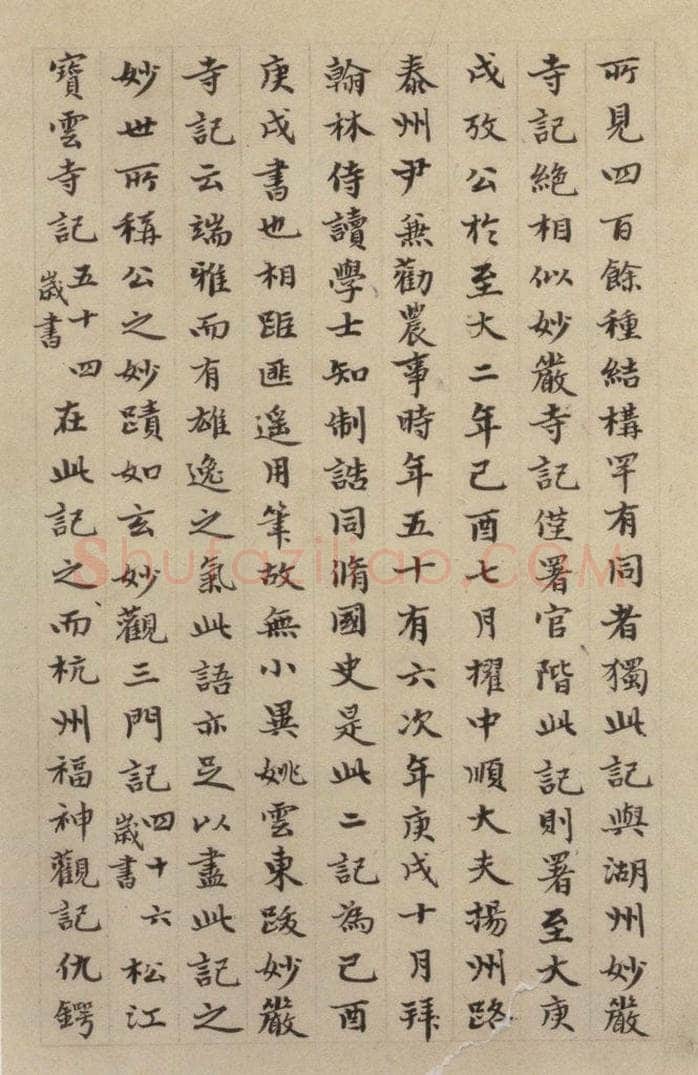 所見四百餘種結構罕有同者獨此記與湖州妙嚴
寺記絕相似妙嚴寺記僅署官階此記則署至大庚
戌攷公於至大二年己酉七月擢中順大夫揚州路
泰州尹兼勸農事時年五十有六次年庚戌十月拜
翰林侍讀學士知制誥同脩國史是此二記為己酉
庚戌書也相距匪遥用筆故無小異姚雲東跋妙嚴
寺記云端雅而有雄逸之氣此語亦足以盡此記之
妙世所稱公之妙蹟如玄妙觀三門記四十六歲書松江
寶雲寺記五十四歲書在此記之前杭州福神觀記仇鍔
Shufaziliao.COM